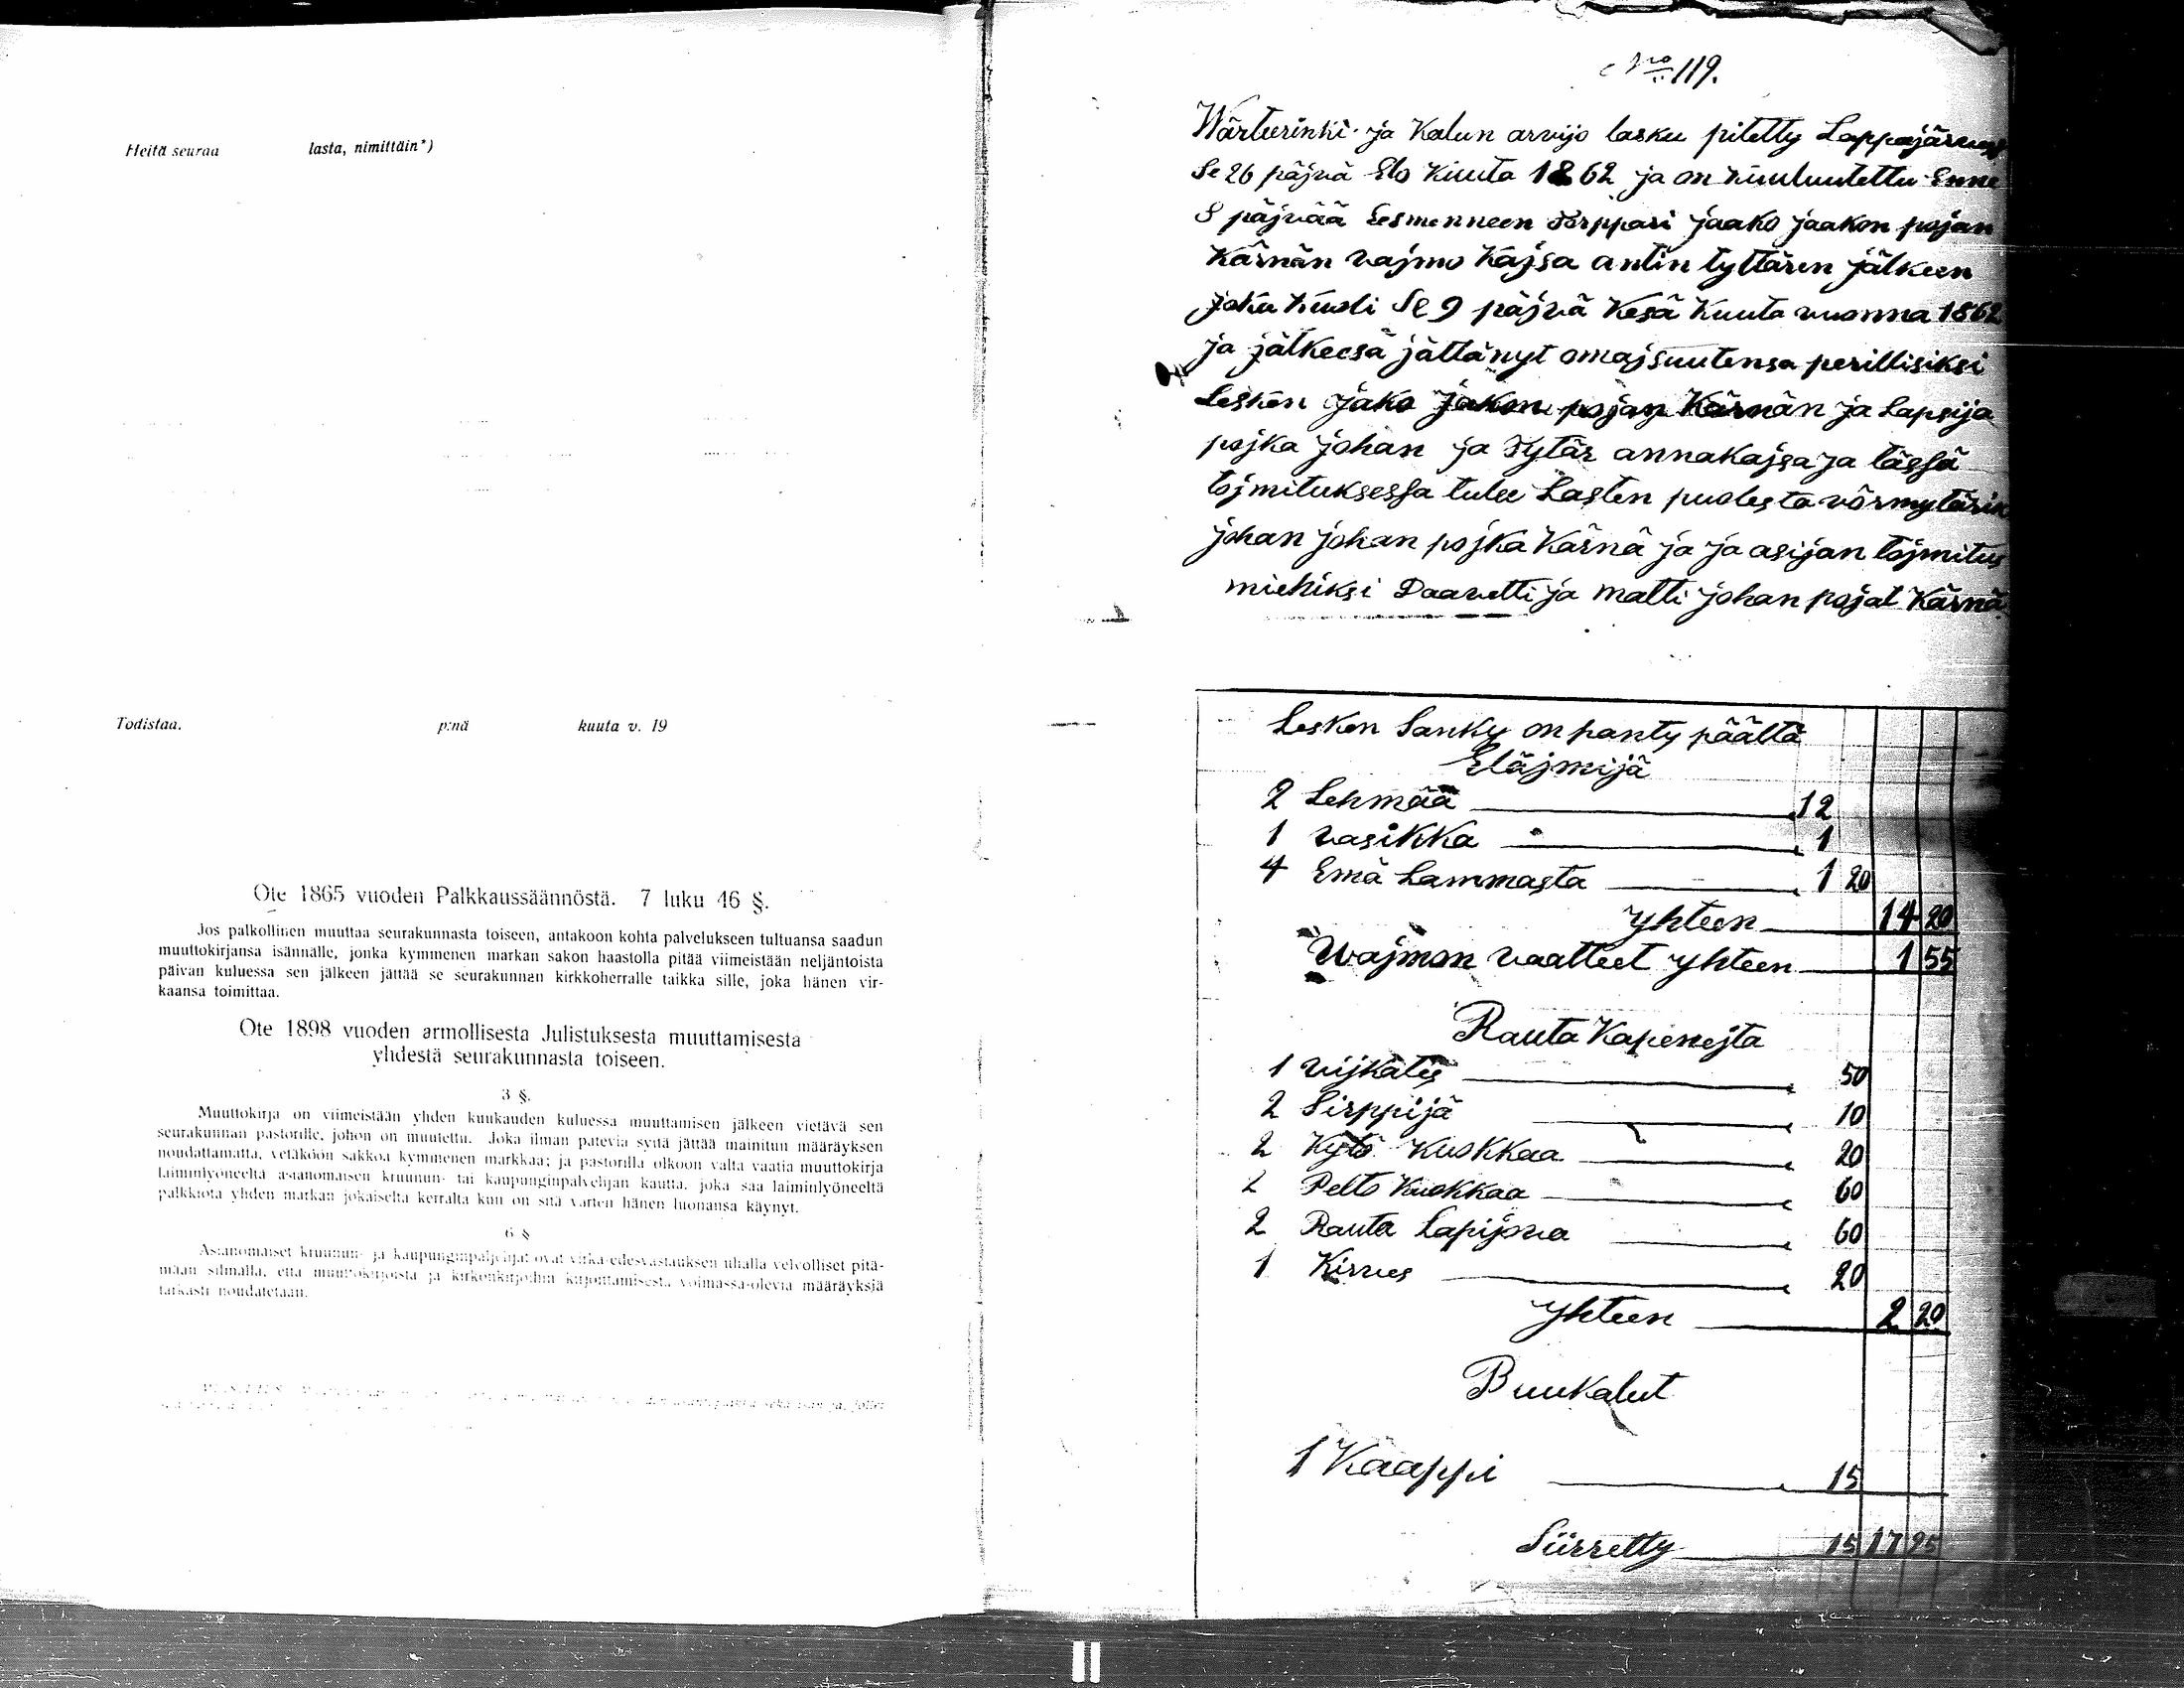 Heitä seuraa lasta, nimittäin*)
Todistaa. p:nä kuuta v. 19
Ote 1865 vuoden Palkkaussäännöstä. 7 luku 46 §.
Jos palkollinen muuttaa seurakunnasta toiseen, antakoon kohta palvelukseen tultuansa saadun
muuttokirjansa isännälle, jonka kymmenen markan sakon haastolla pitää viimeistään neljäntoista
päivän kuluessa sen jälkeen jättää se seurakunnan kirkkoherralle taikka sille, joka hänen vir-
kaansa toimittaa.
Ote 1898 vuoden armollisesta Julistuksesta muuttamisesta
yhdestä seurakunnasta toiseen.
3 §.
Muuttokirja on viimeistään yhden kuukauden kuluessa muuttamisen jälkeen vietävä sen
seurakunnan pastorille, johon on muutettu. Joka ilman pätevää syytä jättää mainitun määräyksen
noudattamatta, vetäköön sakkoa kymmenen markkaa; ja pastorilla olkoon valta vaatia muuttokirja
laiminlyöneeltä asianomaisen kruunun- tai kaupunginpalvelijan kautta, joka saa laiminlyöneeltä
palkkiota yhden markan jokaiselta kerralta kun on sitä varten hänen luonansa käynyt.
6 §
Asianomaiset kruunun- ja kaupunginpalvelijat ovat virka-edesvastauksen uhalla velvolliset pitä-
mään silmällä, että muuttokirjoista ja kirkonkirjoihin kirjoittamisesta voimassa-olevia määräyksiä
tarkasti noudatetaan.
No 119.
Wärteerinki ja Kalun arvijo lasku pitetty Lappajärves
Se 26 päjvä Elo Kuuta 1862 ja on Kuuluutettu Enne
8 päjvää Eesmenneen Torppari jaako jaakon pojan
Kärnän vajmo Kajsa antin tyttären jälkeen
joka kuoli Se 9 päjvä Kesä Kuuta vuonna 1862
ja jälkeesä jättänyt omajsuutensa perillisiksi
Lesken jako jakon pojan Kärnän ja Lapsija
pojka johan ja Tytär annakajsa ja tässä
tojmituksessa tulee Lasten puolesta vörmytärin
johan johan pojka Kärnä ja ja asijan tojmitus
miehiksi Daavetti ja matti johan pojat Kärnä
Lesken Sanky on panty päältä
Eläjmijä
2 Lehmää 12
1 vasikka 1
4 Emä Lammasta 1 20
Yhteen 14 20
Wajmon vaatteet Yhteen 1 55
Rauta Kapenejta
1 vijkate 50
2 Sirppijä 10
2 Kytö Kuokkaa 20
2 Pelto Kuokkaa 60
2 Rauta Lapijova 60
1 Kirves 20
Yhteen 2 20
Buukalut
1 Kaappi 15
Siirretty 15 17 95